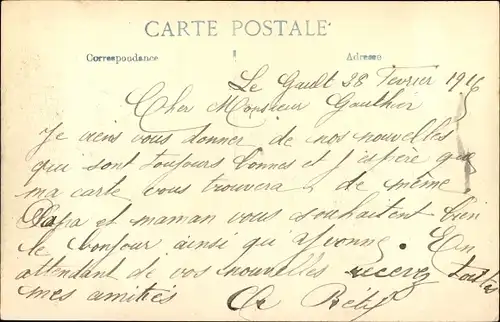 CARTE POSTALE
Correspondance Adresse
Le Gault 28 Fevrier 1916
Cher Monsieur Gauthier
Je viens vous donner de nos nouvelles
qui sont toujours bonnes et j'espere que
ma carte vous trouvera de même
Papa et maman vous souhaitent bien
le bonjour ainsi qu'Yvonne. En
attendant de vos nouvelles recevez toutes
mes amitiés